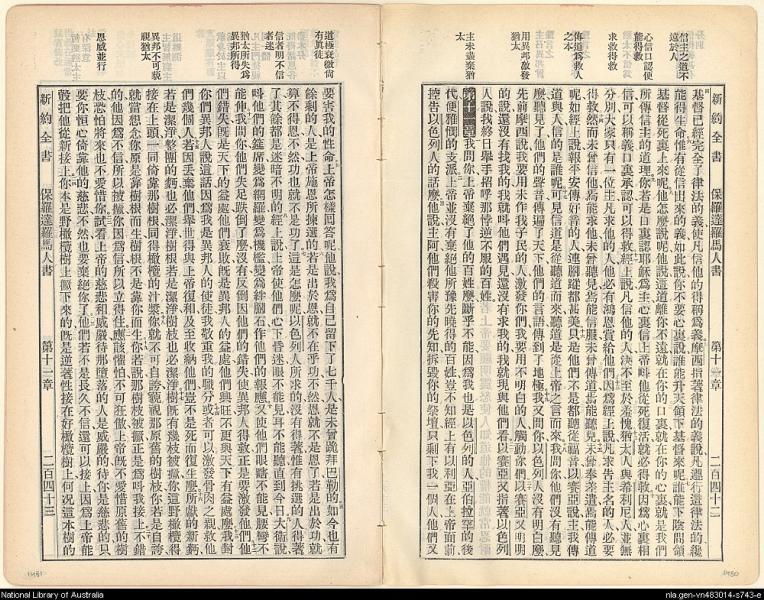 信主之道不遠於人
心信口認便能得救
求救得救
傳道為救人之本
用異邦啟發猶太
主未盡棄猶太
新約全書 保羅達羅馬人書 第十一章 二百四十二
基督已經完全了律法的義使凡信他的得稱為義摩西指著律法的義說凡遵行這律法的纔
能得生命惟有從信出來的義如此說你不要心裏說誰能升天領下基督來呢誰能下陰間領
基督從死裏上來呢他怎麼說呢他說這道離你不遠就在你的口裏就在你的心裏就是我們
所傳信主的道理你若是口裏認耶穌為主心裏信上帝呌他從死復活就必得救因為心裏相
信可以稱義口裏承認可以得救經上說凡信他的人決不至於羞愧猶太人與希利尼人並無
分別大家只有一位主凡求他的人他必有鴻恩賞給他們因為經上說凡求告主名的人必要
得救然而未曾信他焉能求他未曾聽見焉能信服未曾傳道焉能聽見未曾奉差遣焉能傳道
呢如經上說報平安傳好音的人連腳蹤都甚美只是他們不是都聽從福音以賽亞說主我傳
道與人信的是誰呢可見信道是從聽道而來聽道是從上帝之言而來我問你們沒有聽見
麼聽見了他們的聲音傳遍了天下他們的言語傳到了地極我又問你以色列人沒有明白麼
先前摩西說我要用未作我子民的人激發你們我要用不明白的人觸動你們以賽亞又明明
的說還沒有找我的我就呌他們遇見還沒有求我的我就現與他們看以賽亞又指著以色列
人說我終日舉手招呼那悖逆不服的百姓
第十一章我問你上帝棄絕了他的百姓麼斷乎不能因為我也是以色列的人亞伯拉罕的後
代便雅憫的支派上帝並沒有棄絕他所豫先曉得的百姓豈不知經上有以利亞在上帝面前
控告以色列人的話麼他說主阿他們殺害你的先知拆毀你的祭壇只剩下我一個人他們又
道極衰微尚有真徒
信者明不信者迷
猶太所失為異邦所得
異邦不可藐視猶太
恩威並行
要害我的性命上帝怎樣回答呢他說我為自己留下了七千人是未曾跪拜巴力的如今也有
餘剩的人是上帝施恩所揀選的若是出於恩就不在乎功不然恩就不是恩了若是出於功就
算不得恩不然功也就不是功了這是怎麼呢以色列人所求的沒有得著惟有挑選的人得著
了其餘都是迷暗不明的經上說上帝使他們心下昏迷眼不能見耳不能聽直到今日大衛說
呌他們的筵席變為網羅變為機檻變為絆腳石作他們的報應又使他們眼矇不能見腰彎不
能伸我問你他們失足跌倒了麼沒有反倒因他們的錯失使異邦人得救正是要激發他們他
們錯失旣是天下的益處他們衰敗旣是異邦人的益處他們興旺不更與天下有益處麼我對
你們異邦人說這話因為我是異邦人的使徒我敬重我的職分或者可以激發骨肉之親救他
們幾個人若因丟棄他們舉世得與上帝復和及至收納他們豈不是死而復生麼所獻的新麪
若是潔淨整團的麪也必潔淨樹根若是潔淨樹枝也必潔淨樹旣有幾枝被掀你這野橄欖得
接在上頭一同倚靠那樹根同得橄欖的汁漿你就不可自誇藐視那原舊的樹枝你若是自誇
就當想念你原是靠樹根而生樹根不是靠你而生你若說那樹枝被掀正是為呌我接上不錯
他們因為不信所以被掀你因為信所以立得住應該懼怕不可狂傲上帝旣不愛惜原舊的樹
枝恐怕將來也不愛惜你試看上帝的慈悲和威嚴待那墮落的人是威嚴的待你是慈悲的只
要你恒心倚靠他的慈悲不然也要棄絕你了他們若不是長久不信還可以接上因為上帝能
彀把他從新接上你本是野橄欖樹上掀下來的旣是逆著性接在好橄欖樹上何況這本樹的
新約全書 保羅達羅馬人書 第十一章 二百四十三
1481
1480
National Library of Australia
nla.gen-vn483014-s743-e